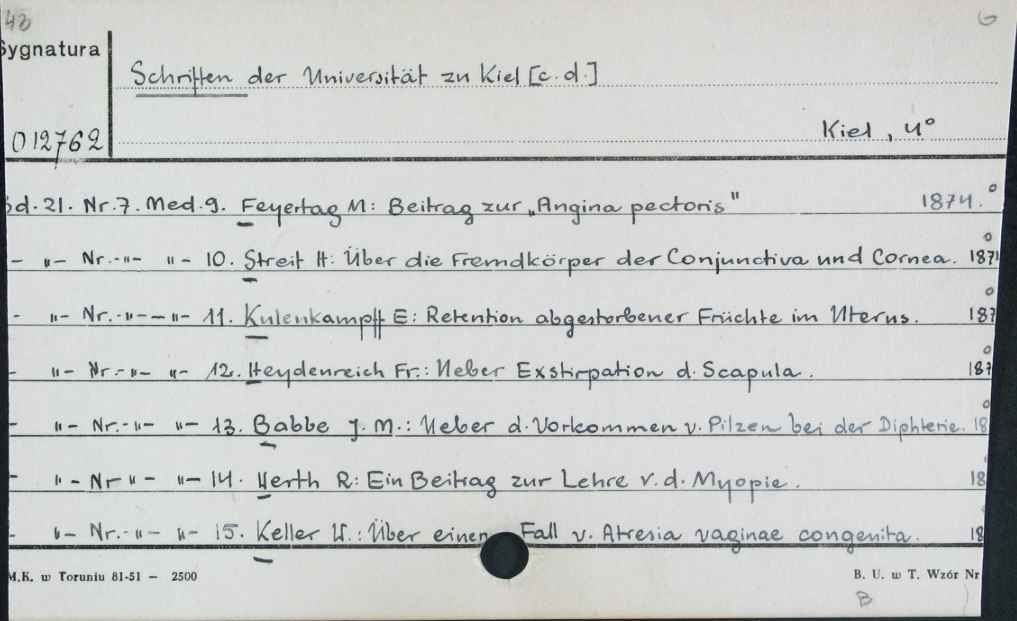 43 G
Sygnatura
Schriften der Universität zu Kiel [c.d.]
012762
Kiel, 4°
Bd. 21. Nr. 7. Med. 9. Feyertag M: Beitrag zur „Angina pectoris" 1874.°
- „- Nr.-"- "- 10. Streit H: Über die Fremdkörper der Conjunctiva und Cornea. 187
- "- Nr.-"- -"- 11. Kulenkampff E: Retention abgestorbener Früchte im Uterus. 187
- "- Nr.-"- "- 12. Heydenreich Fr.: Ueber Exstirpation d. Scapula. 187
- "- Nr.-"- "- 13. Babbe J. M.: Ueber d. Vorkommen v. Pilzen bei der Diphterie. 18
- "- Nr "- "- 14. Herth R: Ein Beitrag zur Lehre v. d. Myopie. 18
- "- Nr.-"- "- 15. Keller W.: Über einen Fall v. Atresia vaginae congenita. 18
M.K. w Toruniu 81-51 – 2500
B. U. w T. Wzór Nr
B